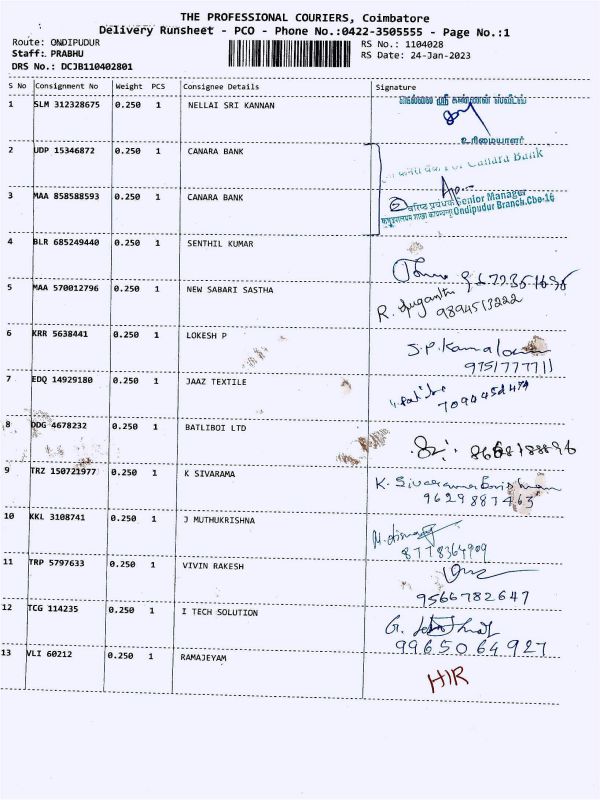 THE PROFESSIONAL COURIERS, Coimbatore
Delivery Runsheet - PCO - Phone No.:0422-3505555 - Page No.:1
Route: ONDIPUDUR RS No.: 1104028
Staff: PRABHU RS Date: 24-Jan-2023
DRS No.: DCJB110402801
S No Consignment No Weight PCS Consignee Details Signature
நெல்லை ஸ்ரீ கண்ணன் ஸ்வீட்ஸ்
1 SLM 312328675 0.250 1 NELLAI SRI KANNAN
உரிமையாளர்
2 UDP 15346872 0.250 1 CANARA BANK
For Canara Bank
3 MAA 858588593 0.250 1 CANARA BANK
Senior Manager
Ondipudur Branch.Cbe-16
4 BLR 685249440 0.250 1 SENTHIL KUMAR
5 MAA 570012796 0.250 1 NEW SABARI SASTHA
R. Suganthi 9894513222
6 KRR 5638441 0.250 1 LOKESH P
S.P.Kamal
9751777711
7 EDQ 14929180 0.250 1 JAAZ TEXTILE
8 DDG 4678232 0.250 1 BATLIBOI LTD
9 TRZ 150721977 0.250 1 K SIVARAMA
K. Sivarama
9629887463
10 KKL 3108741 0.250 1 J MUTHUKRISHNA
8778364909
11 TRP 5797633 0.250 1 VIVIN RAKESH
9566782647
12 TCG 114235 0.250 1 I TECH SOLUTION
G.
9965064927
13 VLI 60212 0.250 1 RAMAJEYAM
HIR